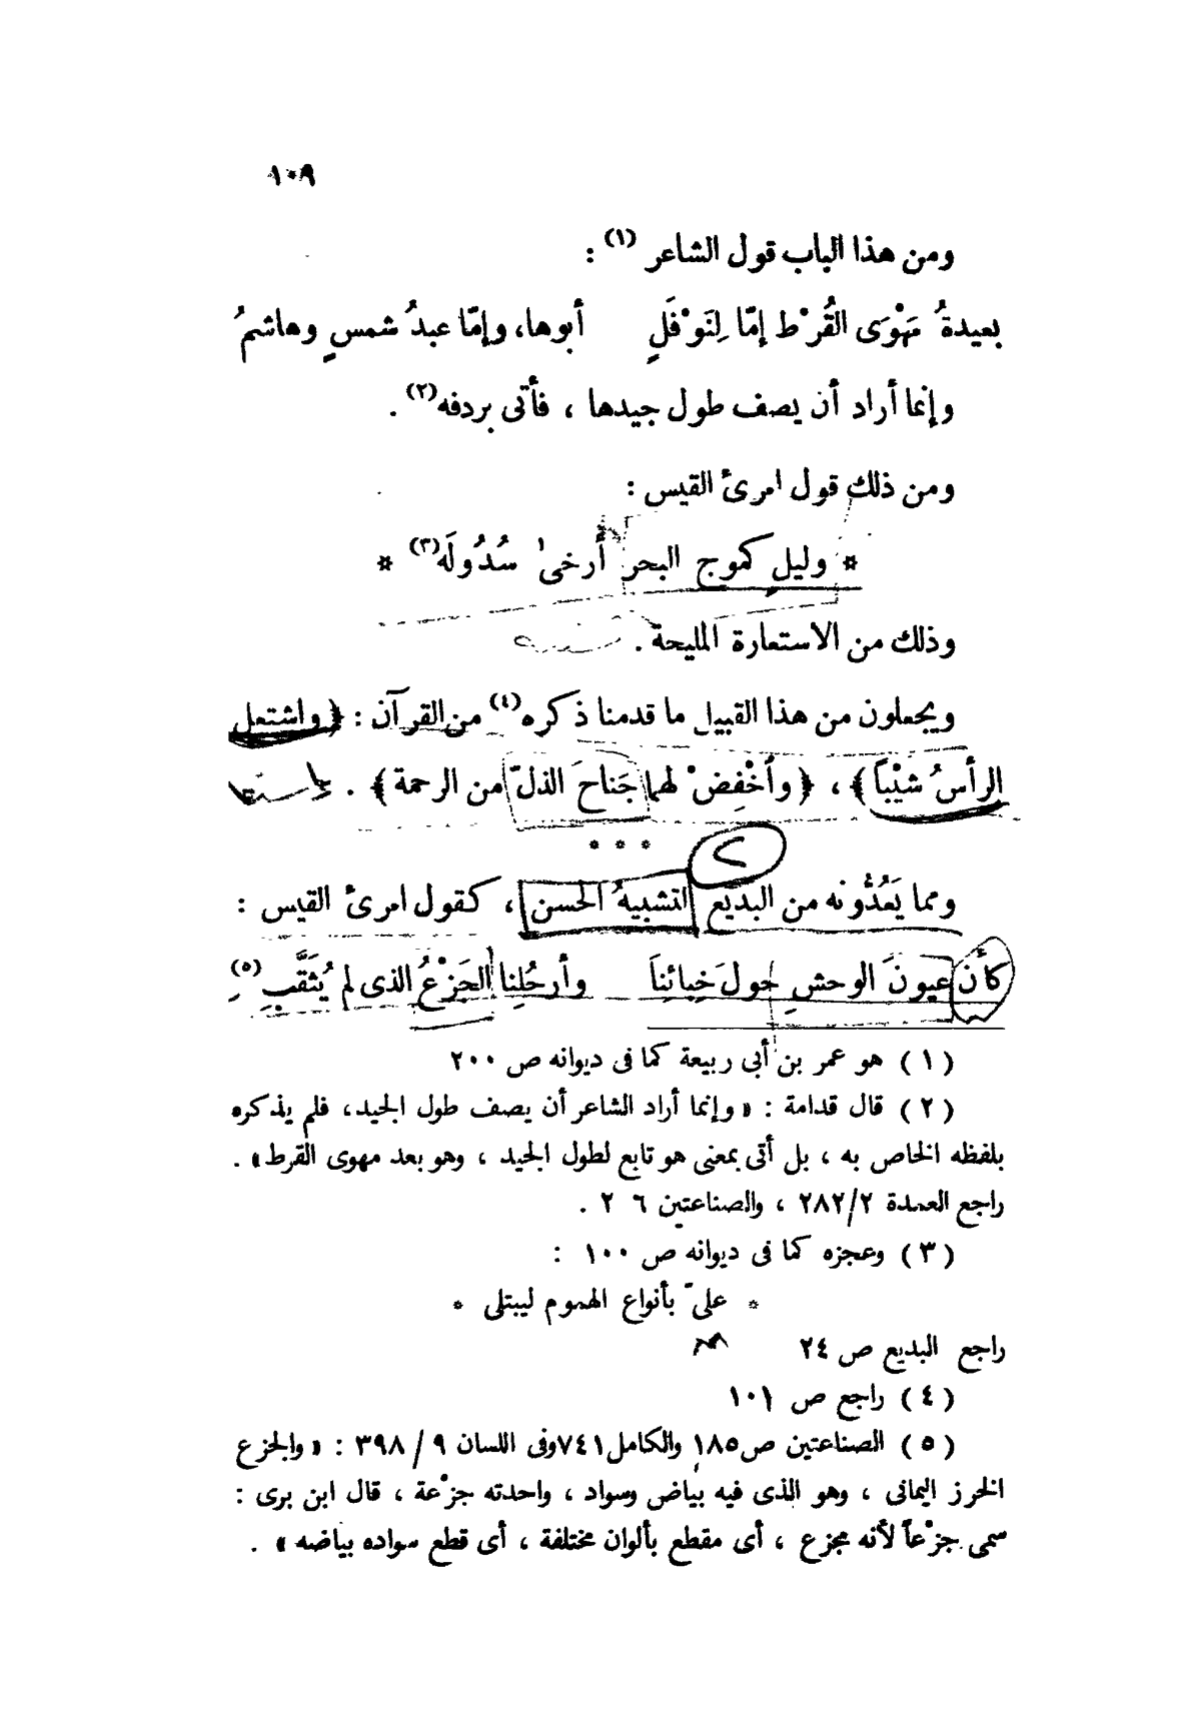 ١٠٩
ومن هذا الباب قول الشاعر (١) :
بعيدةُ مَهْوَى القُرْط إمّا لِنَوْفَلٍ أبوها، وإمّا عبدُ شمسٍ وهاشمُ
وإنما أراد أن يصف طول جيدها ، فأتى بردفه(٢) .
ومن ذلك قول امرئ القيس :
* وليلٍ كموج البحر أَرخىٰ سُدُولَه(٣) *
وذلك من الاستعارة المليحة .
ويجعلون من هذا القبيل ما قدمنا ذكره(٤) من القرآن : ﴿ واشتعل
الرأسُ شَيْباً ﴾ ، ﴿ وأخْفِضْ لهما جَناحَ الذلّ من الرحمة ﴾ .
* * *
٢
ومما يَعُدُّونه من البديع التشبيهُ الحسن ، كقول امرئ القيس :
كأن عيونَ الوحشِ حولَ خِبائنَا وأرحُلِنا الجَزْعُ الذى لم يُثَقَّبِ (٥)
( ١ ) هو عمر بن أبى ربيعة كما فى ديوانه ص ٢٠٠
( ٢ ) قال قدامة : « وإنما أراد الشاعر أن يصف طول الجيد، فلم يذكره
بلفظه الخاص به ، بل أتى بمعنى هو تابع لطول الجيد ، وهو بعد مهوى القرط» .
راجع العمدة ٢٨٢/٢ ، والصناعتين ٦ ٢ .
( ٣ ) وعجزه كما فى ديوانه ص ١٠٠ :
* علىّ بأنواع الهموم ليبتلى *
راجع البديع ص ٢٤
( ٤ ) راجع ص ١٠١
( ٥ ) الصناعتين ص١٨٥ والكامل ٧٤١ وفى اللسان ٩ / ٣٩٨ : « والجزع
الخرز اليمانى ، وهو الذى فيه بياض وسواد ، واحدته جزْعة ، قال ابن برى :
سمى جزْعاً لأنه مجزع ، أى مقطع بألوان مختلفة ، أى قطع سواده بياضه » .